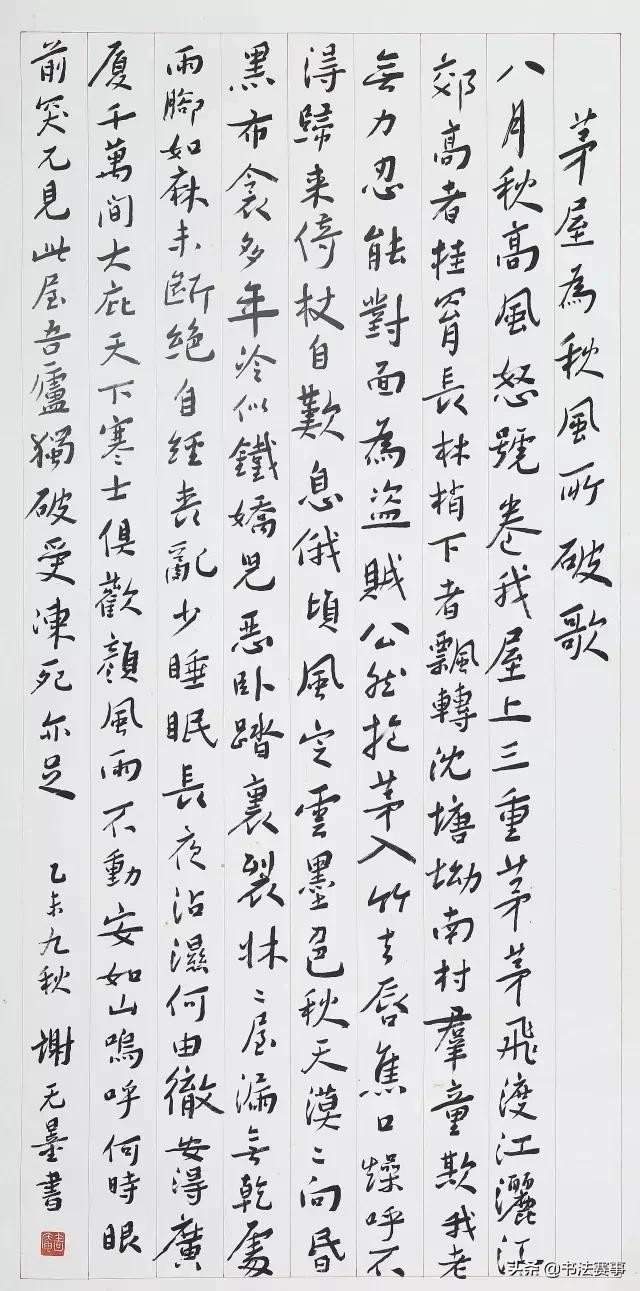 茅屋為秋風所破歌
八月秋高風怒號卷我屋上三重茅茅飛渡江灑江
郊高者挂罥長林梢下者飄轉沈塘坳南村羣童欺我老
無力忍能對面為盜賊公然抱茅入竹去唇焦口燥呼不
得歸来倚杖自歎息俄頃風定雲墨色秋天漠〻向昏
黑布衾多年冷似鐵嬌兒惡卧踏裏裂牀〻屋漏無乾處
雨腳如麻未斷絕自經喪亂少睡眠長夜沾濕何由徹安得廣
厦千萬间大庇天下寒士俱歡顏風雨不動安如山嗚呼何時眼
前突兀見此屋吾廬獨破受凍死亦足 乙未九秋 謝无書
头条@书法赛事